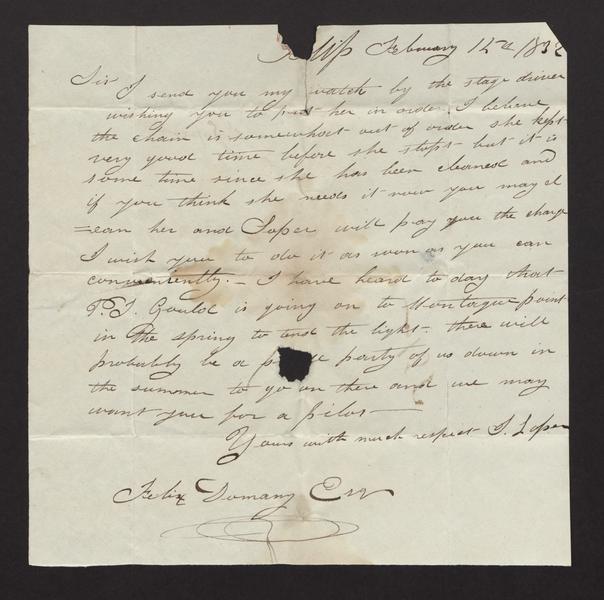 Islip February 12th 1832
Sir I send you my watch by the stage driver
wishing you to put her in order I believe
the chain is somewhat out of order she kept
very good time before she stopt but it is
some time since she has been cleaned and
if you think she needs it now you may cl
=ean her and Loper will pay you the charge
I wish you to do it as soon as you can
conveniently. – I have heard to day that
P. T. Gould is going on to Montague point
in the spring to tend the light – there will
probably be a party of us down in
the summer to go on there and we may
want you for a pilot —
Yours with much respect S. Loper
Felix Domany Esqr